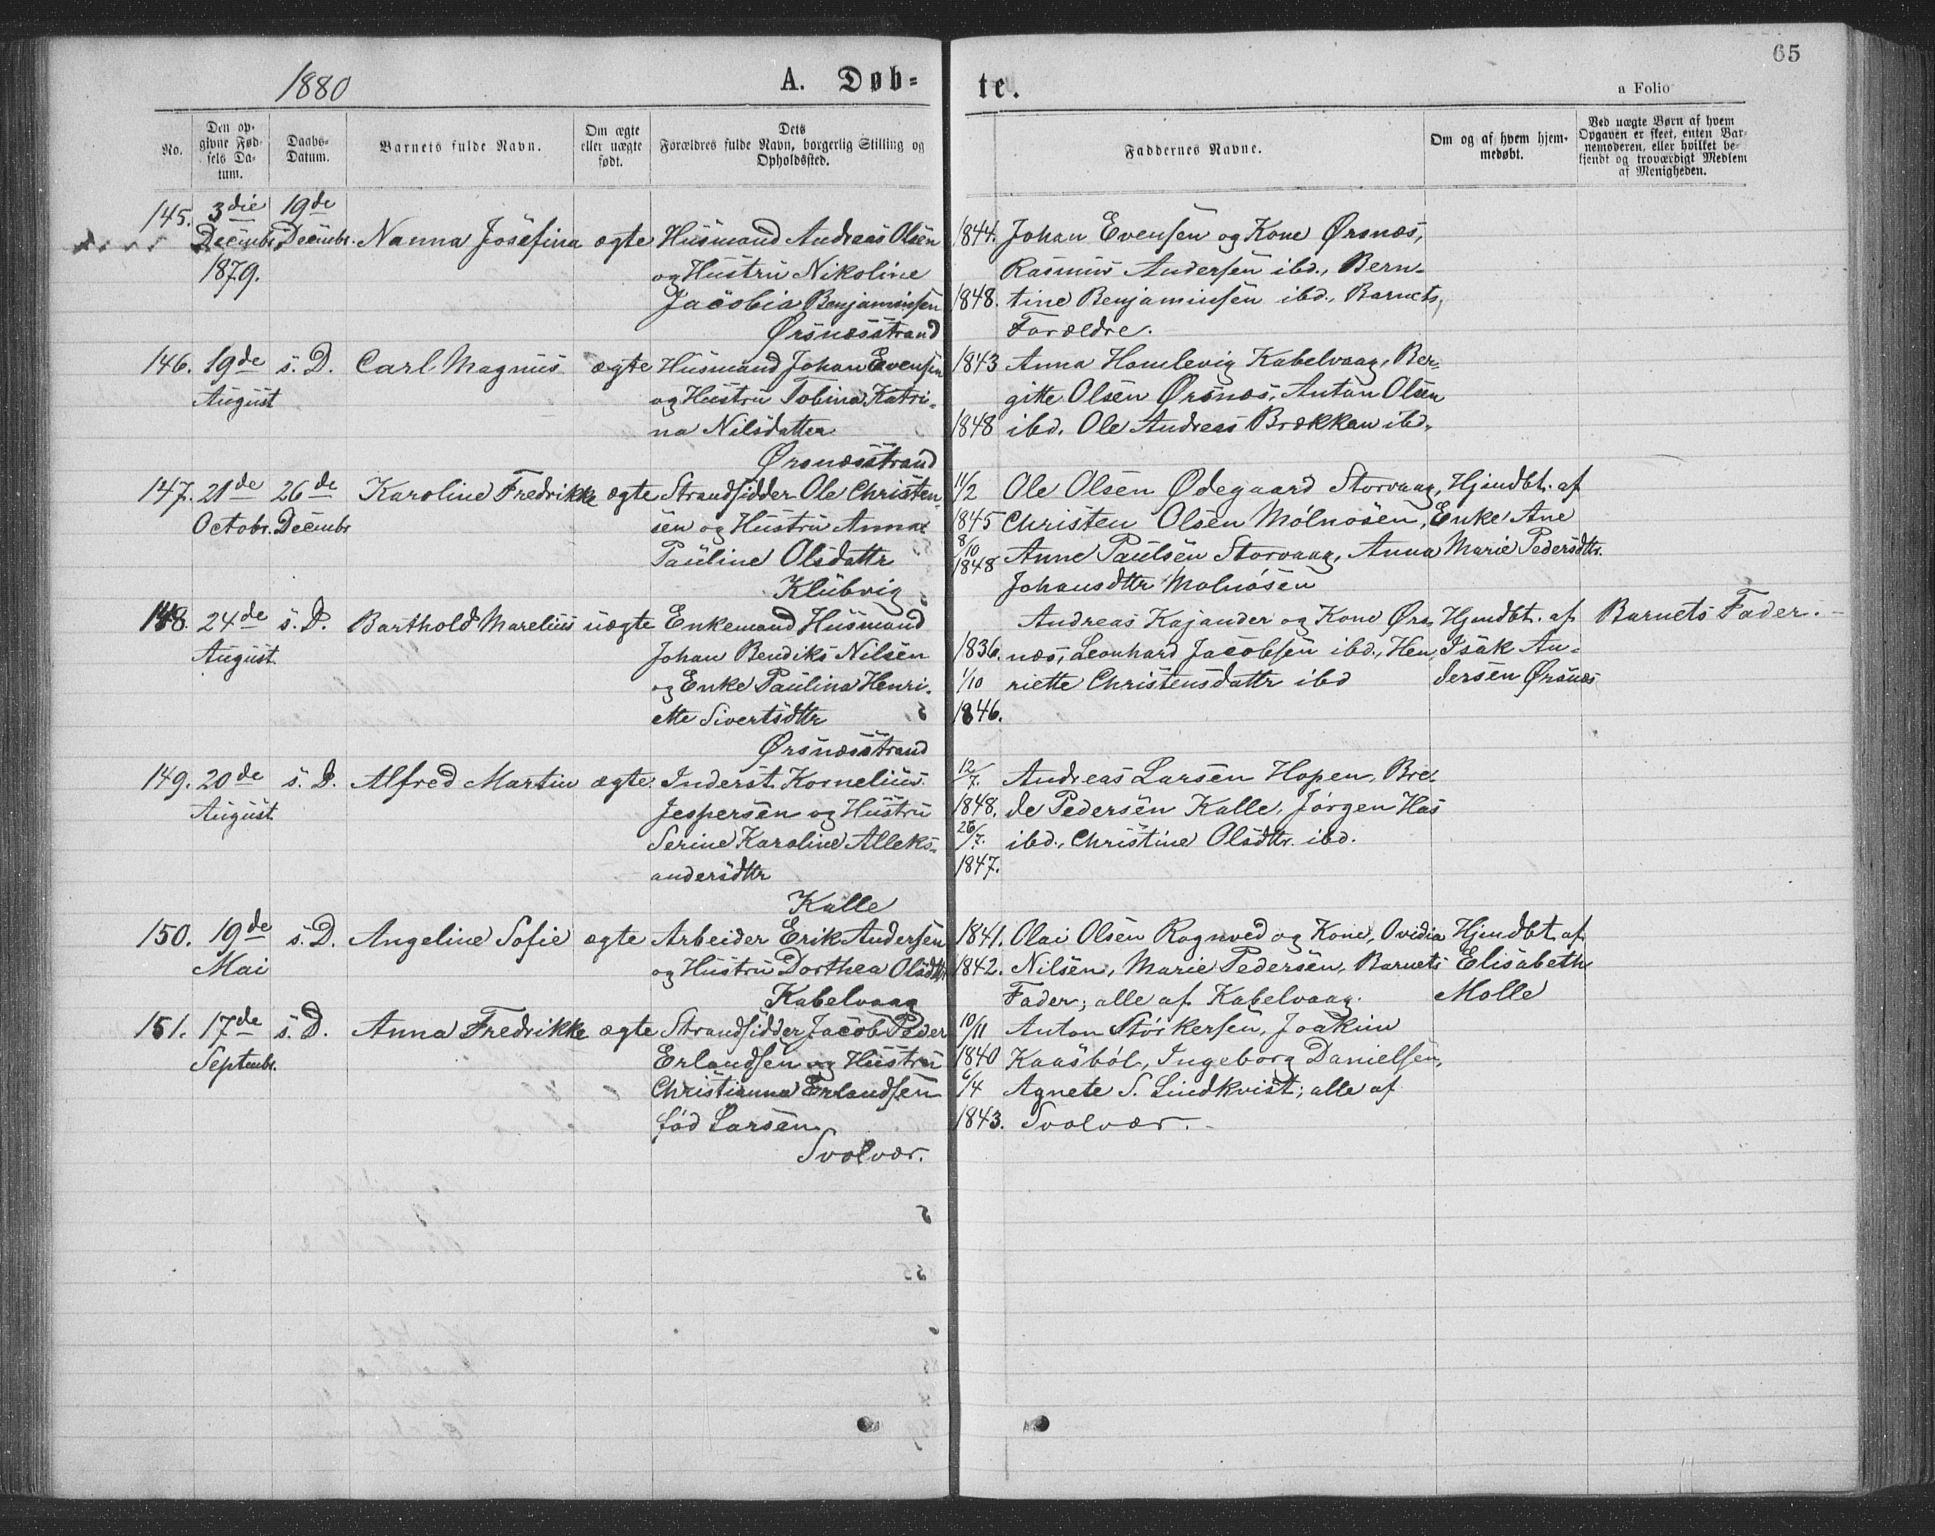 65
1880
A. Døb-
te.
a Folio
No.
Den op-
givne Fød-
sels Da-
tum.
Daabs-
Datum.
Barnets fulde Navn.
Om ægte
eller uægte
født.
Dets
Forældres fulde Navn, borgerlig Stilling og
Opholdssted.
Faddernes Navne.
Om og af hvem hjem-
medøbt.
Ved uægte Børn af hvem
Opgaven er skeet, enten Bar-
nemoderen, eller hvilket be-
kjendt og troværdigt Medlem
af Menigheden.
145.
3die
Decembr.
1879.
19de
Decembr.
Nanna Josefina
ægte
Husmand Andreas Olsen
og Hustru Nikoline
Jacobia Benjaminsen
Ørsnæsstrand
1844.
1848.
Johan Evensen og Kone Ørsnæs,
Rasmus Andersen ibd., Bern-
tine Benjaminsen ibd., Barnets
Forældre.
146.
19de
August
s. D.
Carl Magnus
ægte
Husmand Johan Evensen
og Hustru Tobina Katri-
na Nilsdatter
Ørsnæsstrand
1843
1848
Anna Homlevig Kabelvaag, Ber-
gitte Olsen Ørsnæs, Anton Olsen
ibd. Ole Andreas Brækkan ibd.
147.
21de
Octobr.
26de
Decembr
Karoline Fredrikke
ægte
Strandsidder Ole Christen-
sen og Hustru Anna
Pauline Olsdattr
Klubvig
11/2
1845
8/10
1848
Ole Olsen Ødegaard Storvaag,
Christen Olsen Molnosen,
Anne Paulsen Storvaag, Anna
Johansdttr Molnosen
Hjmdbt. af
Enke Ane
Marie Pedersdttr.
148.
24de
August
s. D.
Barthold Marelius
uægte
Enkemand Husmand
Johan Bendiks Nilsen
og Enke Paulina Henri-
ette Sivertsdttr
Ørsnæsstrand
1836.
1/10
1846.
Andreas Kajander og Kone Ørs
næs, Leonhard Jacobsen ibd., Hen
riette Christensdattr ibd
Hjmdbt. af
Isak An-
dersen Ørsnæs
Barnets Fader.
149.
20de
August
s. D.
Alfred Martin
ægte.
Inderst Kornelius
Jespersen og Hustru
Serine Karoline Alleks-
andersdttr
Kalle
12/7
1848.
26/7.
1847.
Andreas Larsen Hopen, Bre-
de Pedersen Kalle, Jørgen Has
ibd., Christine Olsdttr. ibd.
150.
19de
Mai
s. D.
Angeline Sofie
ægte
Arbeider Erik Andersen
og Hustru Dorthea Olsdttr.
Kabelvaag
1841.
1842.
Olai Olsen Rognved og Kone, Ovidia
Nilsen, Marie Pedersen, Barnets
Fader; alle af Kabelvaag.
Hjmdbt. af
Elisabeth
Molle
151.
17de
Septembr.
s. D.
Anna Fredrikke
ægte
Strandsidder Jacob Peder
Erlandsen og Hustru
Christianna Erlandsen
fød Larsen
Svolvær.
10/11
1840
6/4
1843.
Anton Storkersen, Joakim
Kaasbol, Ingeborg Danielsen,
Agnete S. Lindkvist; alle af
Svolvær.